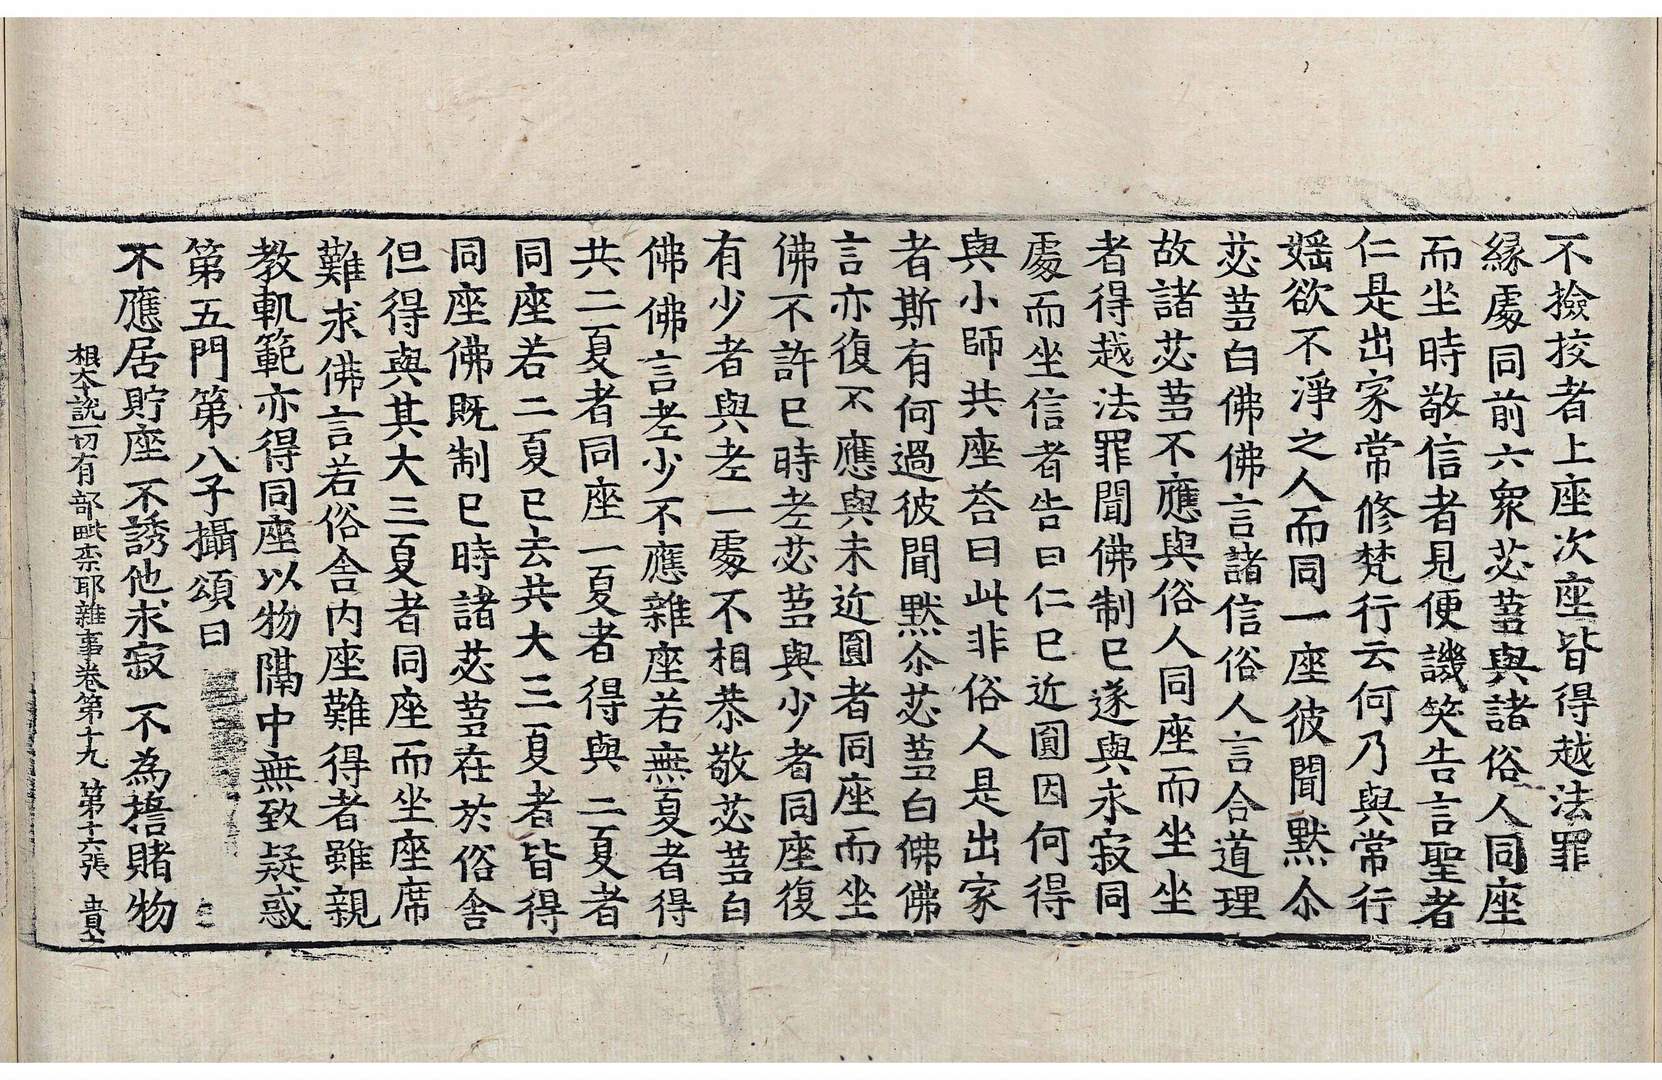 不撿挍者上座次座皆得越法罪
緣處同前六衆苾蒭與諸俗人同座
而坐時敬信者見便譏笑告言聖者
仁是出家常修梵行云何乃與常行
婬欲不淨之人而同一座彼聞默尒
苾蒭白佛佛言諸信俗人言合道理
故諸苾蒭不應與俗人同座而坐坐
者得越法罪聞佛制已遂與求寂同
處而坐信者告曰仁已近圓因何得
與小師共座荅曰此非俗人是出家
者斯有何過彼聞默尒苾蒭白佛佛
言亦復不應與未近圓者同座而坐
佛不許已時老苾蒭與少者同座復
有少者與老老一處不相恭敬苾蒭白
佛佛言老少不應雜座若無夏者得
共二夏者同座一夏者得與二夏者
同座若二夏已去共大三夏者皆得
同座佛既制已時諸苾蒭在於俗舍
但得與其大三夏者同座而坐座席
難求佛言若俗舍内座難得者雖親
教軌範亦得同座以物隔中無致疑惑
第五門第八子攝頌曰
不應居貯座 不誘他求寂 不為揞賭物
根本說一切有部毗柰耶雜事卷第十九 第十六張